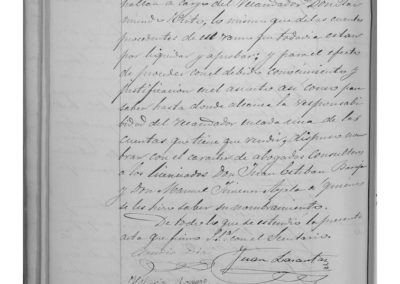 faltan a cargo del Recaudador Don
mundo Soto, lo mismo que de las cuentas
procedentes de su ramo que todavia estan
por liquidar y aprobar; y para el efecto
de proceder con el debido conocimiento y
justificacion en el asunto asi como para
saber hasta donde alcanza la responsabi
bidad del Recaudador en cada una de las
cuentas que tiene que rendir, dispuso nom
brar con el caracter de abogados Consultores
a los licenciados Don Juan Esteban
y Don Manuel Ximeno Ayala a quienes
se les hizo saber su nombramiento.
De todo lo que se estendio la presente
acta que firmó S.S. con el Secretario
Juan